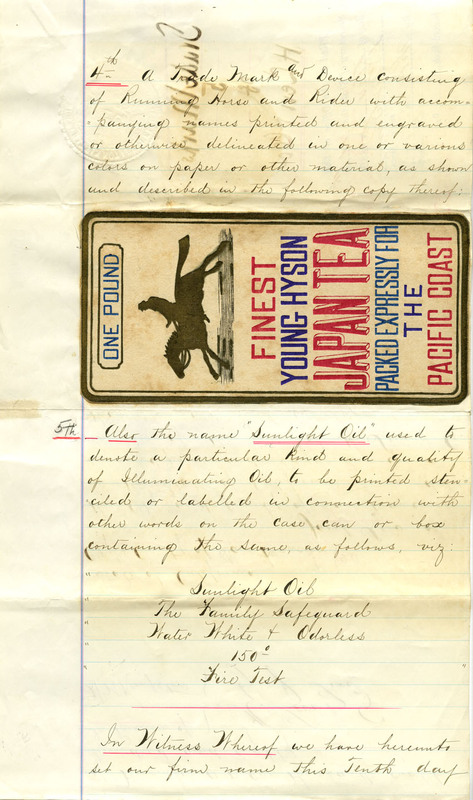 4th A Trade Mark and Device consisting
of Running Horse and Rider with accom-
panying names printed and engraved
or otherwise delineated in one or various
colors on paper or other material, as shown
and described in the following copy thereof:
ONE POUND
FINEST
YOUNG HYSON
JAPAN TEA
PACKED EXPRESSLY FOR
THE
PACIFIC COAST
5th Also the name "Sunlight Oil" used to
denote a particular kind and quality
of Illuminating Oil, to be printed sten-
ciled or labelled in connection with
other words on the case can or box
containing the same, as follows, viz:
Sunlight Oil
The Family Safeguard
Water White & Odorless
150°
Fire Test
In Witness Whereof we have hereunto
set our firm name this Tenth day